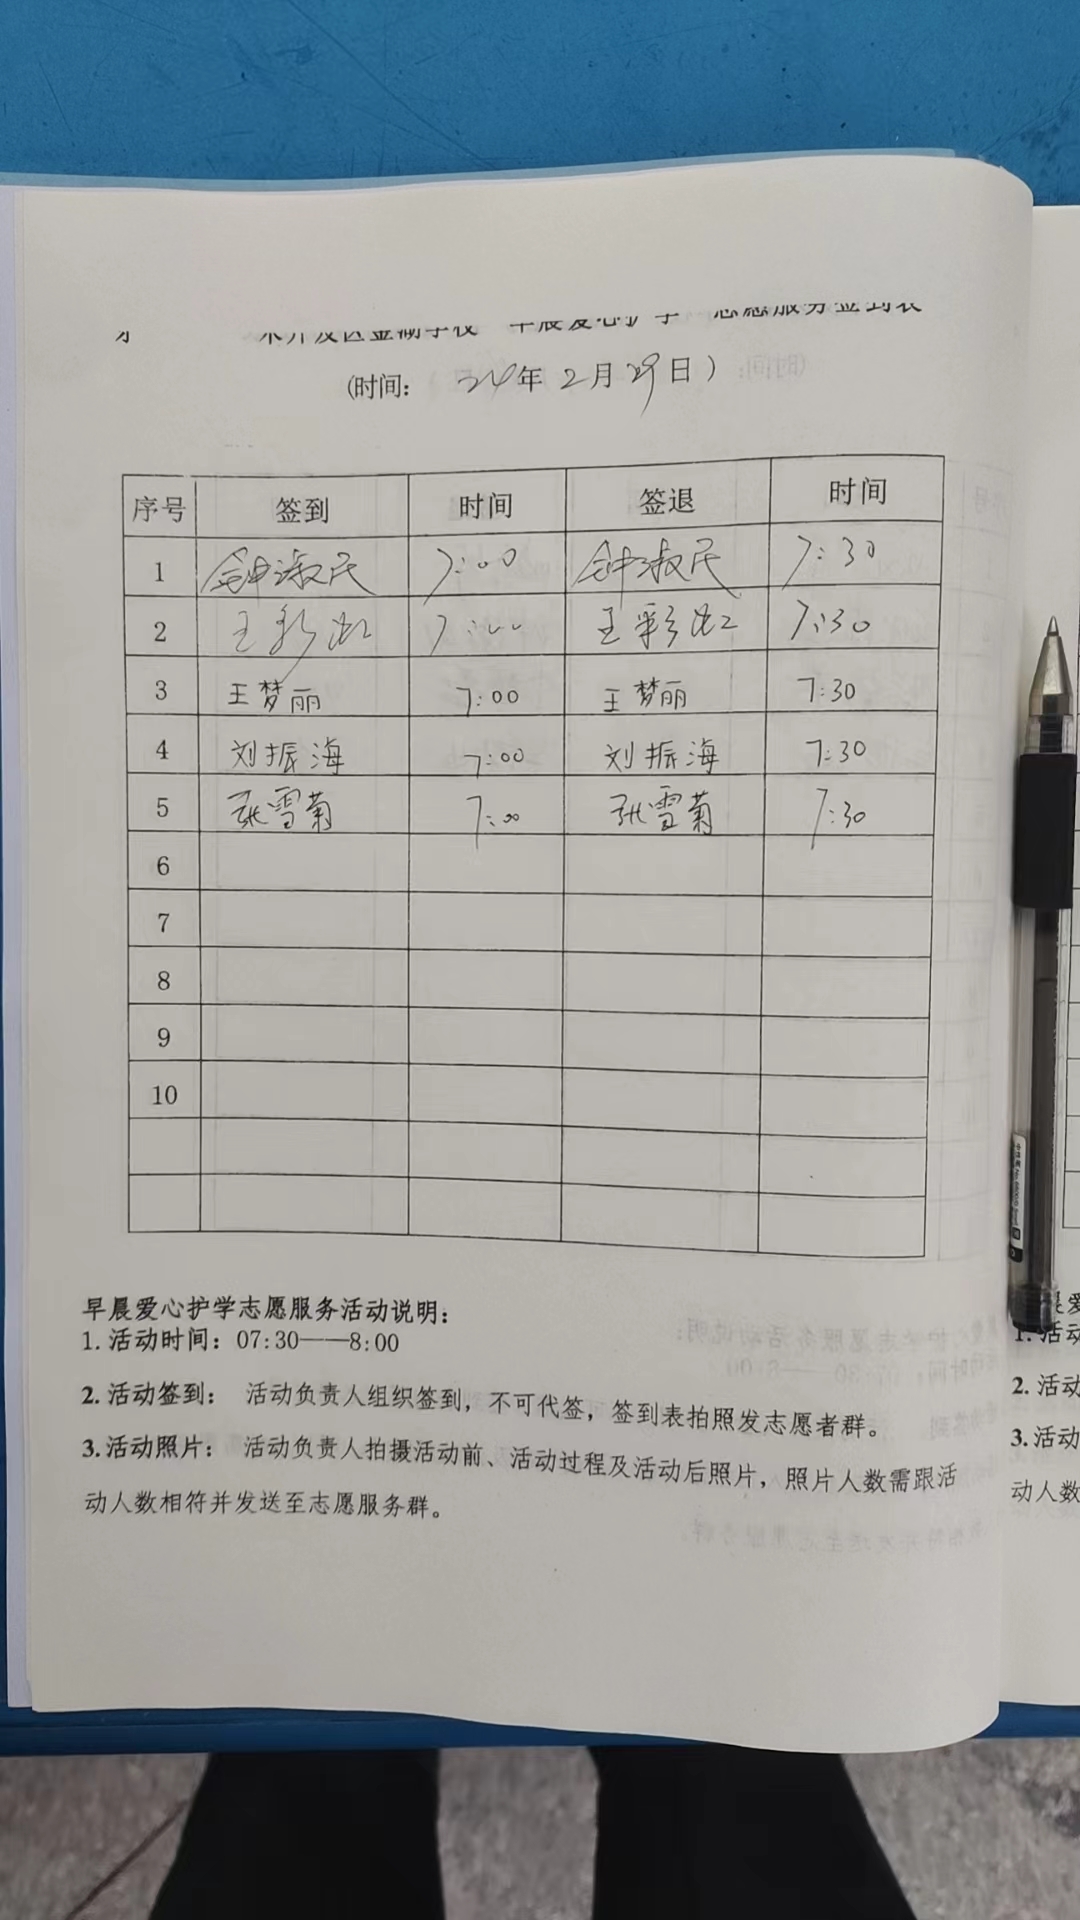 (时间： 24年2月29日）
序号 签到 时间 签退 时间
1 钟淑民 7:00 钟淑民 7:30
2 王彩虹 7:00 王彩虹 7:30
3 王梦丽 7:00 王梦丽 7:30
4 刘振海 7:00 刘振海 7:30
5 张雪菊 7:00 张雪菊 7:30
6
7
8
9
10
早晨爱心护学志愿服务活动说明：
1. 活动时间：07:30——8:00
2. 活动签到： 活动负责人组织签到，不可代签，签到表拍照发志愿者群。
3. 活动照片： 活动负责人拍摄活动前、活动过程及活动后照片，照片人数需跟活
动人数相符并发送至志愿服务群。
1. 活动
2. 活动
3. 活动
动人数